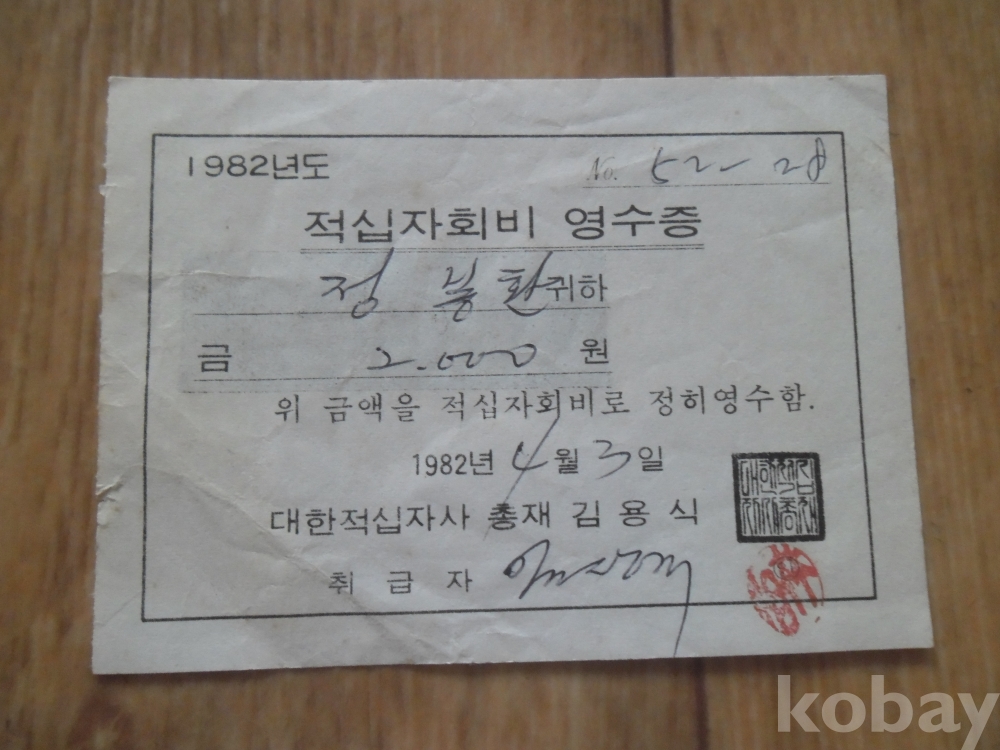 1982년도
No. 52-28
적십자회비 영수증
정봉환 귀하
금 2.000 원
위 금액을 적십자회비로 정히영수함.
1982년 4월 3일
대한적십자사 총재 김용식
취급자
kobay